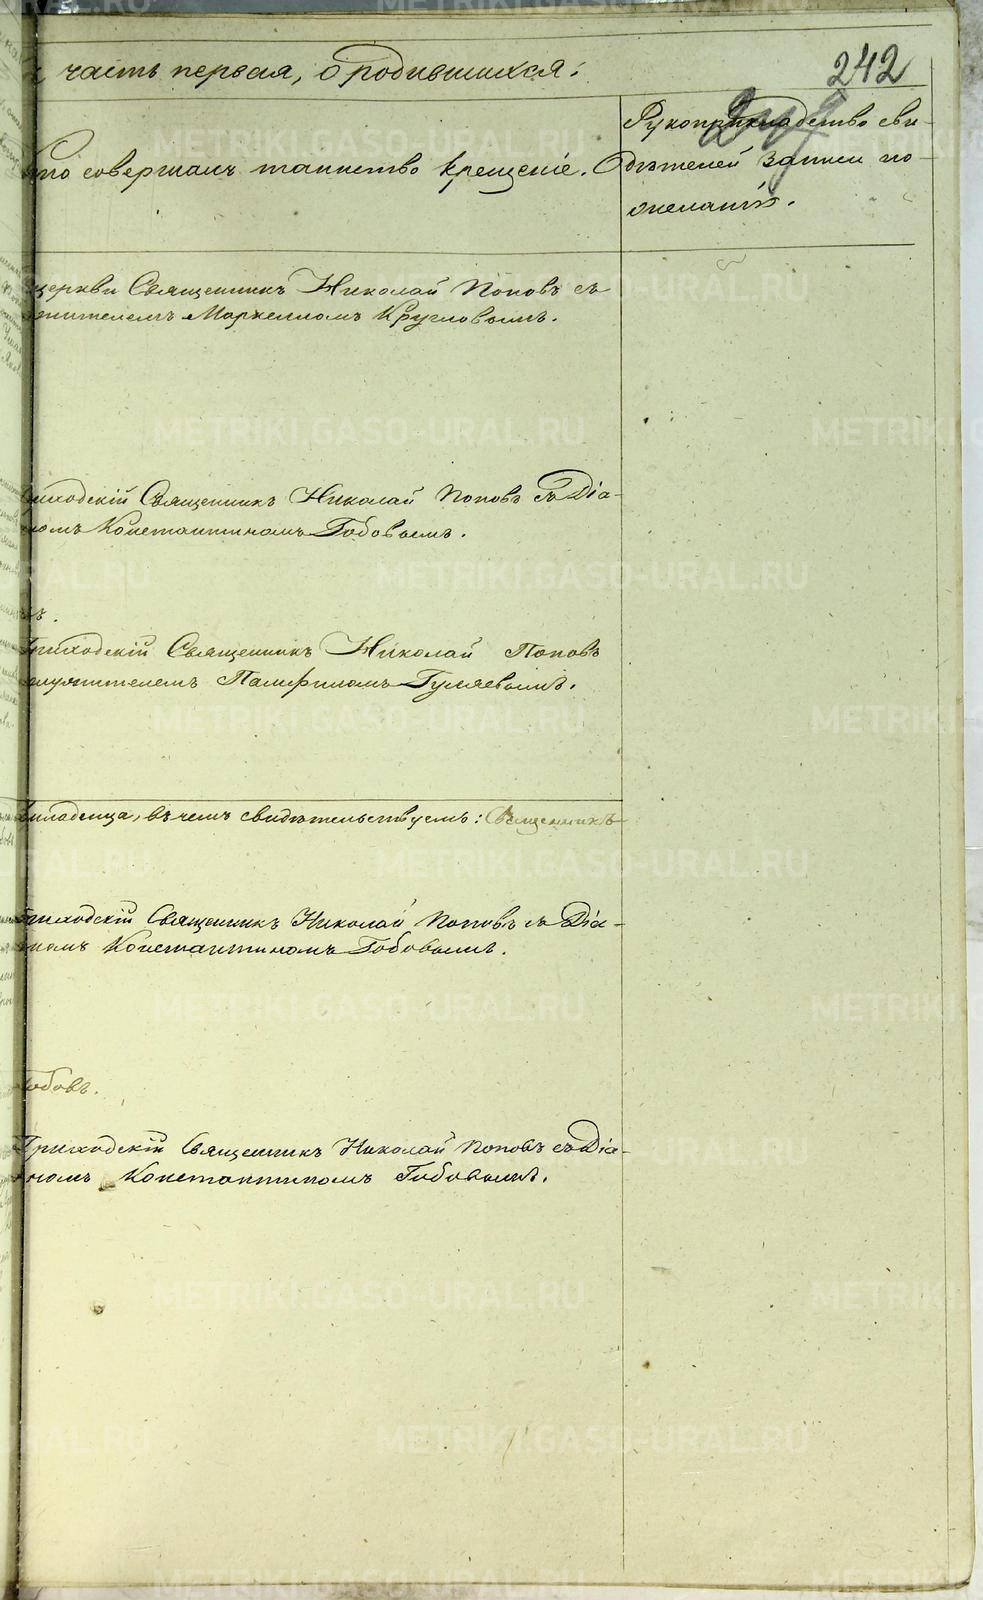 часть первая, о родившихся:
242
Кто совершалъ таинство крещенія.
Рукоприкладство сви-
дѣтелей записи по
желанію.
церкви Священникъ Николай Поповъ съ
жителемъ Маркелломъ Кругловымъ.
приходскій Священникъ Николай Поповъ съ Діа-
кономъ Константиномъ Гобовымъ.
Приходскій Священникъ Николай Поповъ
служителемъ Памфиломъ Гуляевымъ.
младенца, въ чемъ свидѣтельствуемъ: Священникъ
Приходскій Священникъ Николай Поповъ съ Діа-
кономъ Константиномъ Гобовымъ.
Гобовъ.
Приходскій Священникъ Николай Поповъ съ Діа-
кономъ Константиномъ Гобовымъ.
METRIKI.GASO-URAL.RU